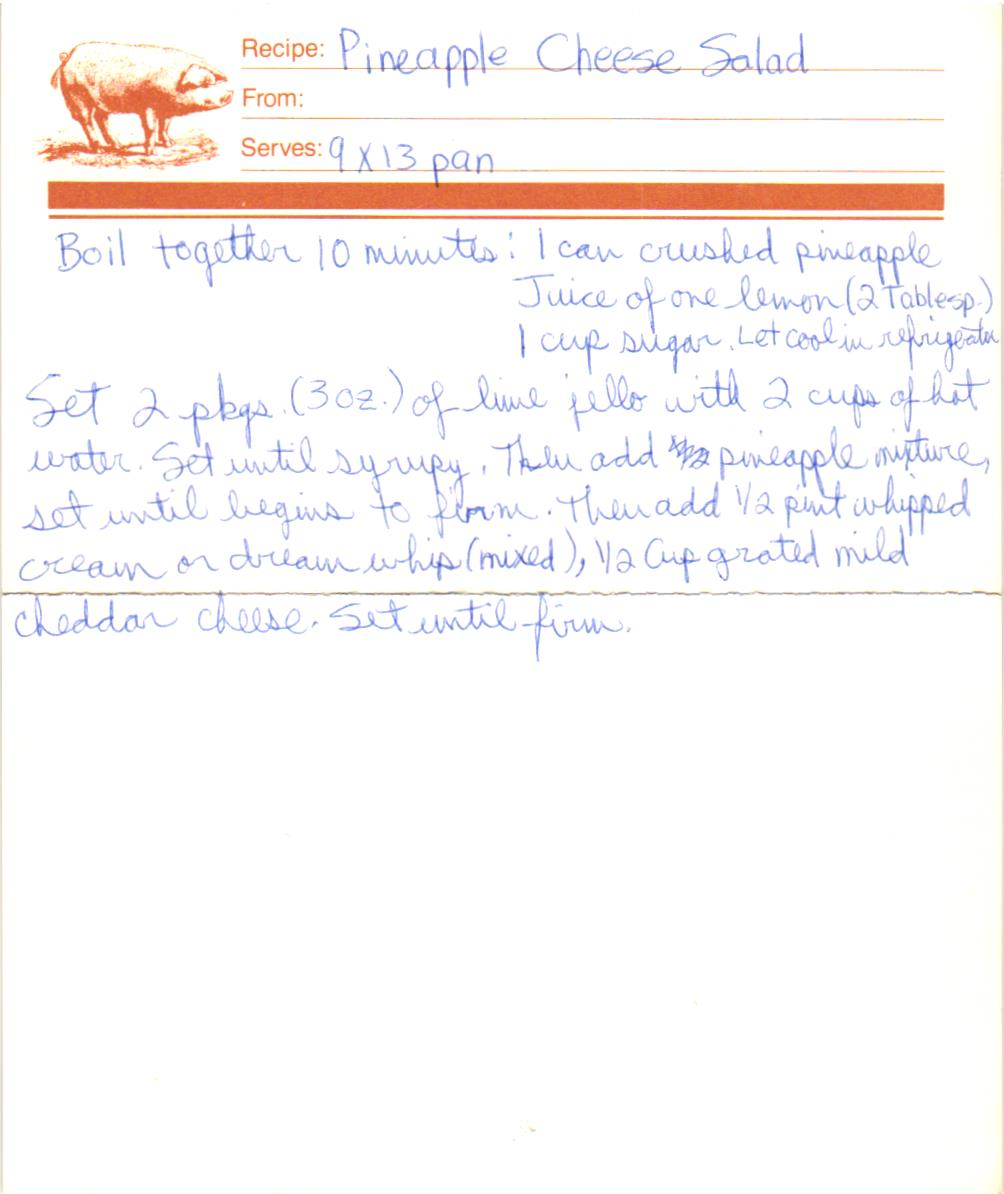 Recipe: Pineapple Cheese Salad
From:
Serves: 9 X 13 pan
Boil together 10 minutes: 1 can crushed pineapple
Juice of one lemon (2 Tablesp.)
1 cup sugar. Let cool in refrigerator
Set 2 pkgs. (3 oz.) of lime jello with 2 cups of hot
water. Set until syrupy. Then add pineapple mixture,
set until begins to firm. Then add 1/2 pint whipped
cream or dream whip (mixed), 1/2 Cup grated mild
cheddar cheese. Set until firm.